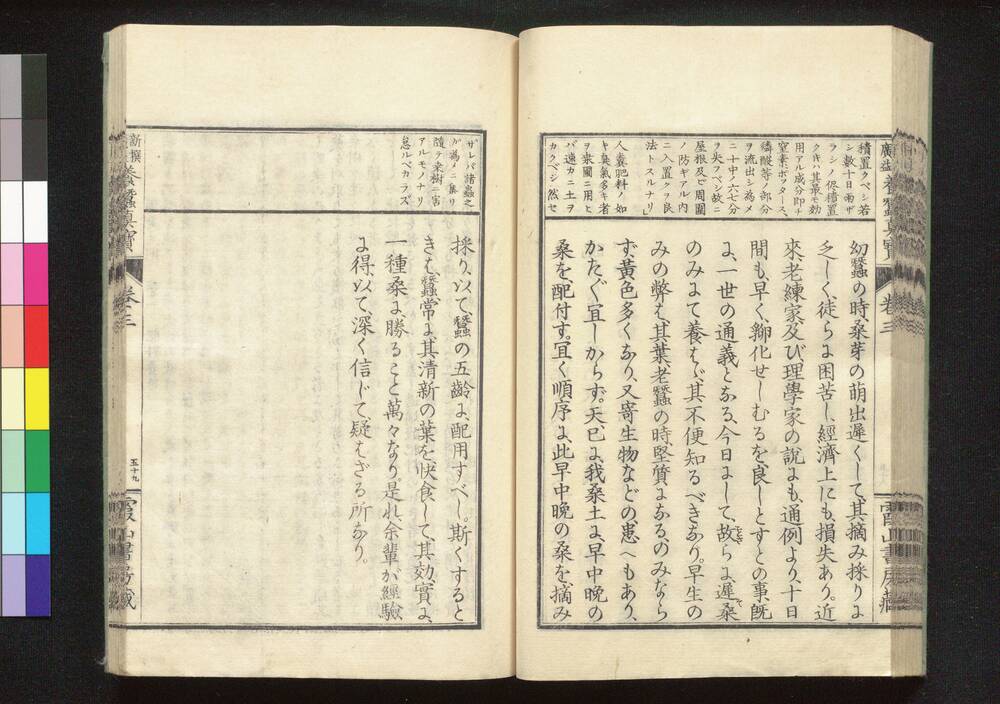 積置クベシ若
シ數十日雨ザ
ラシノ侭積置
クキハ其最モ効
用アル成分即チ
窒素、ポッタース、
燐酸等ノ部分
ヲ流出シ為メ
ニ十中ノ六七分
ヲ失フベシ故ニ
屋根及ビ周圍
ノ防ギアル内
ニ入置クヲ良
法トスルナリ」
人糞肥料ノ如
キ臭氣多キ者
ヲ桑園ニ用ヒ
バ速カニ土ヲ
カクベシ然セ
幼蠶の時桑芽の萌出遲くして、其摘み採りに
乏しく、徒らに困苦し、經濟上にも損失あり。近
來、老練家及び、理學家の說にも、通例より、十日
間も、早く孵化せしむるを良しとすとの事、旣
に、一世の通義となる、今日にして、故らに遲桑
のみにて養はゞ、其不便知るべきなり。早生の
みの弊は、其葉老蠶の時堅質になる、のみなら
ず、黃色多くなり、又寄生物などの患へもあり、
かた〴〵宜しからず。天巳に、我桑土に、早中晚の
桑を配付す。宜く順序に、此早中晚の桑を、摘み
卷三
霞山書房藏
ザレバ諸蟲之
ガ為メニ集リ
隨テ桑樹ニ害
アルモノナリ
怠ルベカラズ
採り、以て、蠶の五齡に、配用すべし。斯くすると
きは、蠶常に、其清新の葉を快食して、其効實に、
一種桑に、勝ること萬々なり是れ、余輩が經驗
に得、以て、深く信じて、疑はざる所なり。
新撰養蠶眞寶
卷三
五十九
霞山書房藏